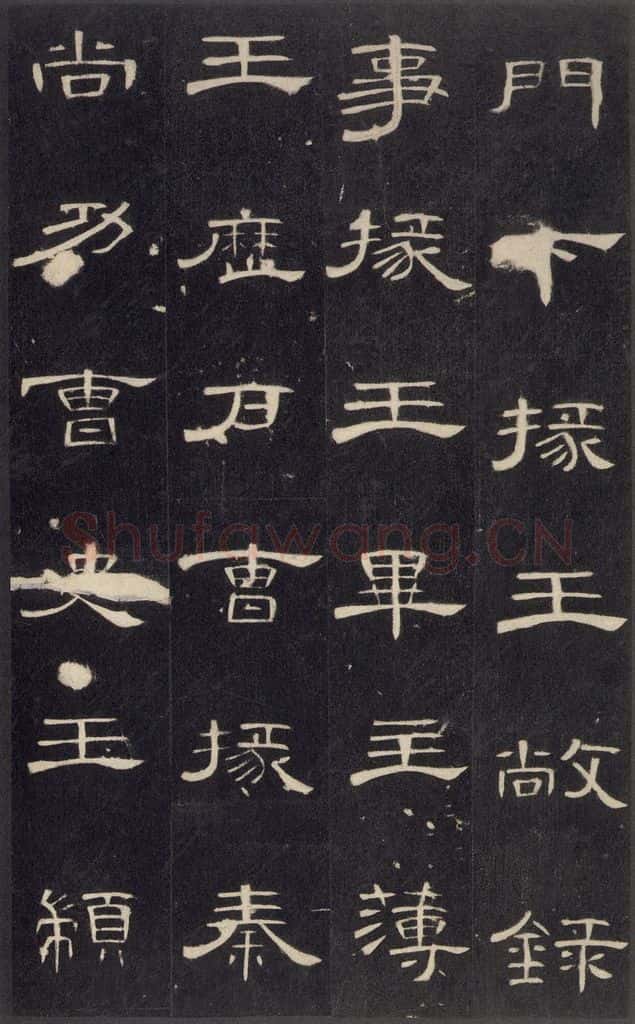 門下掾王敞錄
事掾王畢主薄
王歷戶曹掾秦
尚功曹史王顓
Shufawang.CN